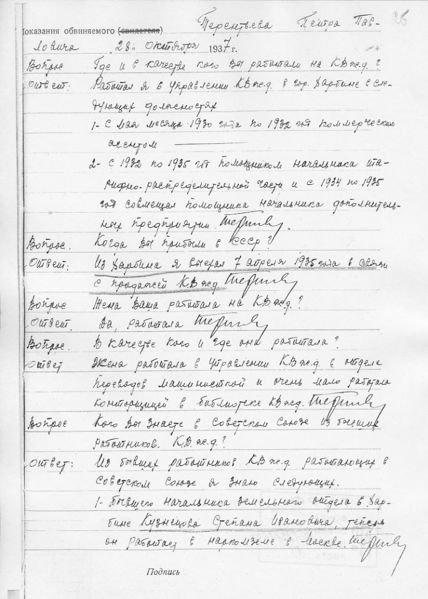 26
Показания обвиняемого (свидетеля) Терентьева Петра Пав-
ловича 28 октября 1937 г.
Вопрос Где и в качестве кого Вы работали на КВжд?
Ответ: Работал я в управлении КВжд в гор. Харбине в сле-
дующих должностях
1- С мая месяца 1930 года по 1932 год коммерческим
агентом
2- с 1932 по 1935 год помощником начальника та-
рифно-распределительной части и с 1934 по 1935
год совмещал помощника начальника дополнитель-
ных предприятий
Вопрос. Когда Вы прибыли в СССР?
Ответ: Из Харбина я выехал 7 апреля 1935 года в связи
с продажей КВжд.
Вопрос Жена Ваша работала на КВжд?
Ответ. Да, работала
Вопрос. В качестве кого и где она работала?
Ответ Жена работала в управлении КВжд в отделе
переводов машинисткой и очень мало работала
конторщицей в библиотеке КВжд.
Вопрос Кого Вы знаете в Советском Союзе из бывших
работников КВжд?
Ответ: Из бывших работников КВжд работающих в
Советском Союзе я знаю следующих.
1- бывшего начальника земельного отдела в Хар-
бине Кузнецова Степана Ивановича, теперь
он работает в наркомземе в Москве.
Подпись